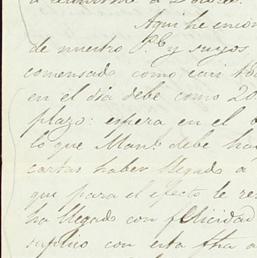 Aqui he encon
de nuestro P.e y suyos
comensado como casi tod
en el dia debe como 20
plazo: espera en el
lo que Man.l debe ha
cartas haber llegado a
que para el efecto le re
ha llegado con felicidad
suplico con esta fha a